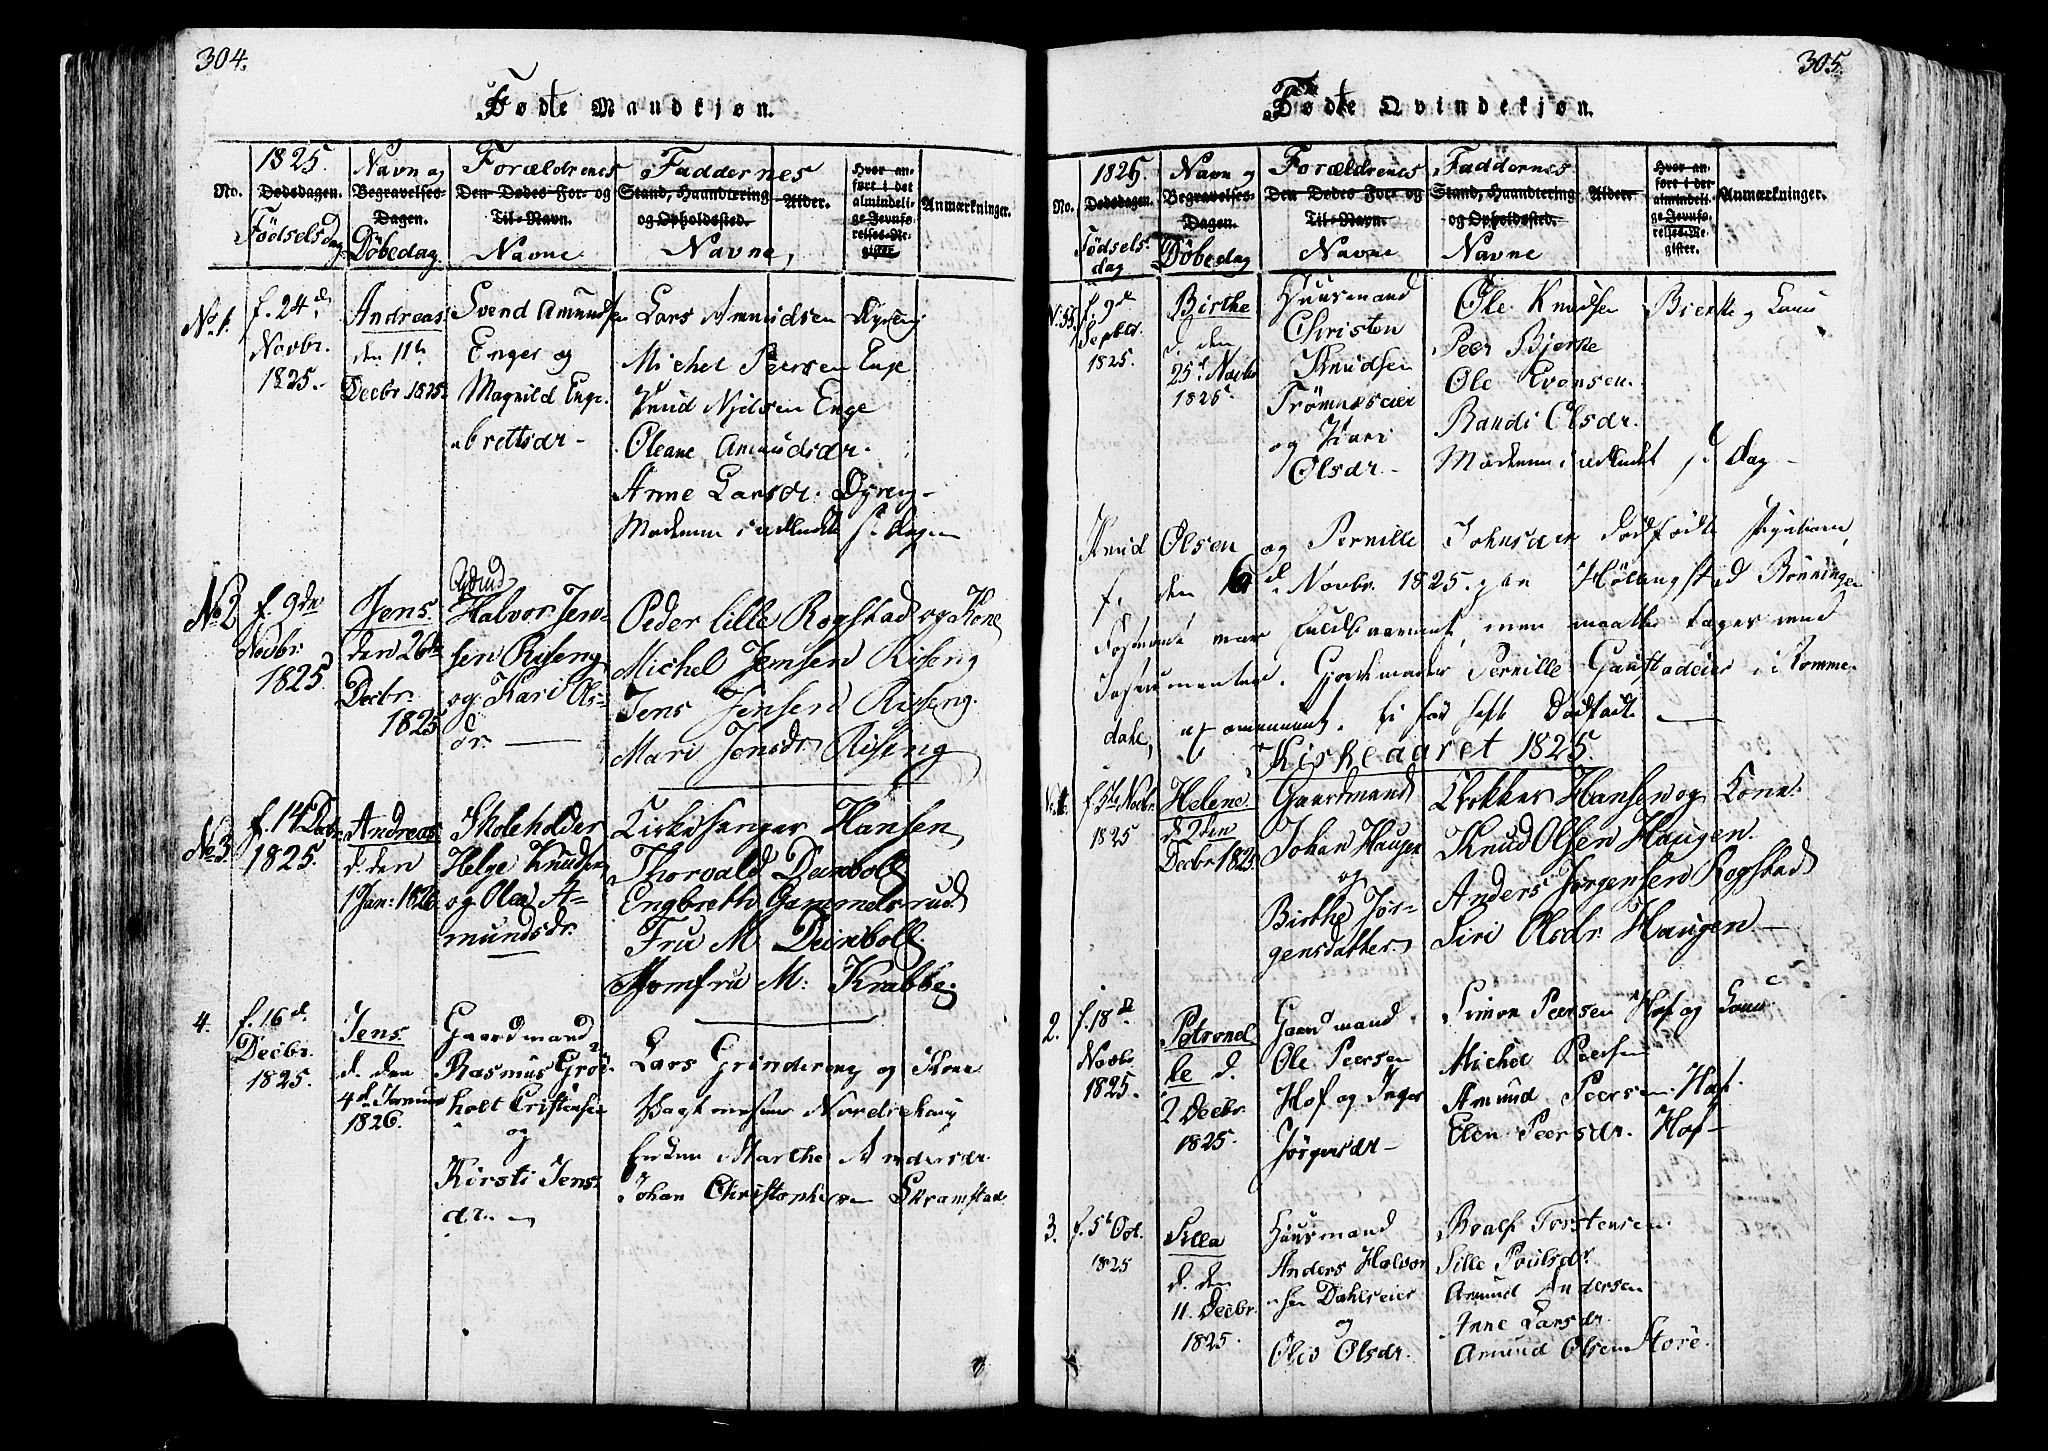 304.
Fødte Mandkjøn.
No.
1825.
Dødsdagen.
Fødselsdag
Navn og
Begravelses-
Dagen.
Døbedag
Forældrenes
Den Dødes For- og
Til-Navn.
Navne
Faddernes
Stand, Haandtering
og Opholdssted.
Navne,
Alder.
Hvor an-
ført i det
almindeli-
ge Jevnfø-
relses-Re-
gister
Anmærkninger.
No 1.
f. 24d
Novbr.
1825.
Andreas
den 11te
Decbr 1825.
Svend Amundsen
Enger og
Magnild Enge-
bretsdr -
Lars Amundsen Dyreng
Michel Peersen Enge
Knud Nielsen Enge
Oleane Amundsdr.
Anne Larsdr. Dyreng -
Moderen
No 2
f. 9de
Novbr.
1825.
Jens.
den 26de
Decbr.
1825
Halvor Jen-
sen Riseng
og Kari Ols-
dr.
Peder lille Rogstad og Kone
Michel Jensen Riseng
Jens Jensen Riseng.
Mari Jensdr. Riseng
No 3.
f. 14 Decbr.
1825.
Andreas.
d. den
1 Jan: 1826
Skoleholder
Helge Knudsen
og Olea A=
mundsdr.
Kirkesanger Hansen
Thorvald Deinboll
Engbreth Gammelsrud.
Fru M. Deinboll.
Jomfru M: Krabbe.
4.
f. 16d.
Decbr.
1825.
Jens.
d. den
4d Januar
1826.
Gaardmand
Rasmus Grö-
holt Cristensen
og
Kirsti Jens-
dr. -
Lars Grindereng og Kone
Nordschoug
Enken Marthe Andersdr.
Johan Christophersen Skramstad
305.
Fødte Qvindekjøn.
No.
1825.
Dødsdagen.
Fødsels-
dag
Navn og
Begravelses-
Dagen.
Døbedag
Forældrenes
Den Dødes For- og
Til-Navn.
Navne
Faddernes
Stand, Haandtering
og Opholdssted.
Navne
Alder
Hvor an-
ført i det
almindeli-
ge Jevnfø-
relses-Re-
gister.
Anmærkninger.
N. 55.
f. 9d
Septbr.
1825.
Birthe
d. den
25d Novbr
1825
Huusmand
Christen
Knudsen
Trömnæseier
og Kari
Olsdr -
Ole Knudsen Bierke og Kone
Peer Bjerke
Ole Evensen.
Randi Olsdr.
Moderen dag -
Knud Olsen og Pernille Johnsdr dødfødte
f. den 6d Novbr. 1825. paa Rönningen
men maatte tages med
Instrumenter. Giordemoder Pernille Gaustadeier i Romme-
dale,
Kirkeaaret 1825.
No. 1.
f. 5te Novbr.
1825
Helene
d. 2den
Decbr 1825.
Gaardmand
Johan Haugen
og
Birthe Jör-
gensdatter
Klokker Hansen og Kone.
Knud Olsen Haugen.
Anders Jörgensen Rogstad
Siri Olsdr. Haugen -
2.
f. 18d
Novbr
1825.
Petronel
le d.
2 Decbr.
1825.
Gaardmand
Ole Peersen
Hof og Inger
Jörgensdr -
Simon Peersen Hof og Kone.
Michel Peersen
Amund Peersen Hof.
Elen Peersdr. Hof -
3.
f. 5t Oct.
1825
Silla
d. den
11. Decbr.
1825.
Huusmand
Anders Halvor-
sen Dahlseier
og
Olia Olsdr.
Torstensen.
Sille Poulsdr.
Amund Andersen
Anne Larsdr.
Amund Olsen Store.